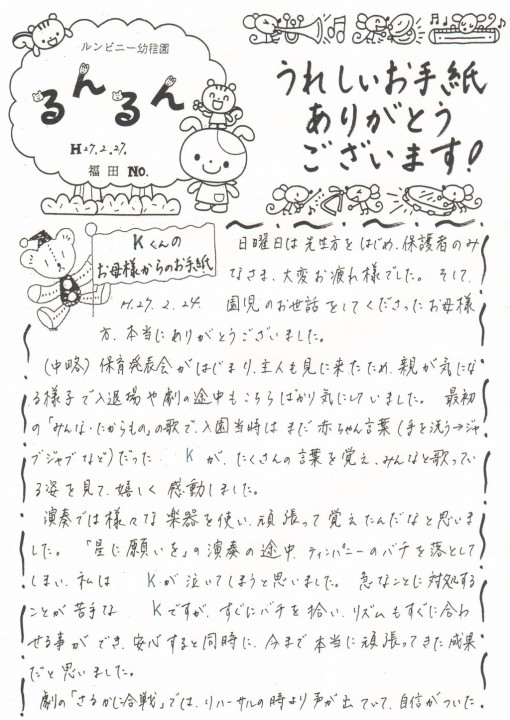 ルンビニー幼稚園
るんるん
H27.2.27.
福田 No.
うれしいお手紙
ありがとう
ございます!
Kくんの
お母様からのお手紙
H.27.2.24.
日曜日は先生方をはじめ、保護者のみ
なさま、大変お疲れ様でした。そして、
園児のお世話をしてくださったお母様
方、本当にありがとうございました。
(中略)保育発表会がはじまり、主人も見に来たため、親が気にな
る様子で入退場や劇の途中もこちらばかり気にしていました。最初
の「みんな・たからもの」の歌で、入園当時はまだ赤ちゃん言葉(手を洗う→ジャ
ブジャブなど)だった Kが、たくさんの言葉を覚え、みんなと歌ってい
る姿を見て、嬉しく感動しました。
演奏では様々な楽器を使い、頑張って覚えたんだなと思いま
した。「星に願いを」の演奏の途中、ティンパニーのバチを落として
しまい、私は Kが泣いてしまうと思いました。急なことに対処する
ことが苦手な Kですが、すぐにバチを拾い、リズムもすぐに合わ
せる事ができ、安心すると同時に、今まで本当に頑張ってきた成果
だと思いました。
劇の「さるかに合戦」では、リハーサルの時より声が出ていて、自信がついた